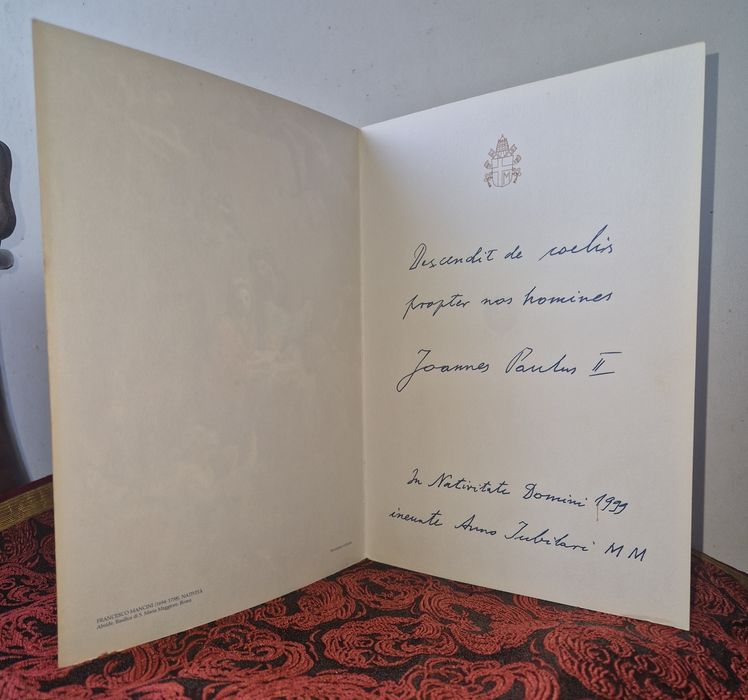 FRANCESCO MANCINI (1694-1758), NATIVITÀ
Abside, Basilica di S. Maria Maggiore, Roma
Descendit de coelis
propter nos homines
Joannes Paulus II
In Nativitate Domini 1999
ineunte Anno Iubilari MM